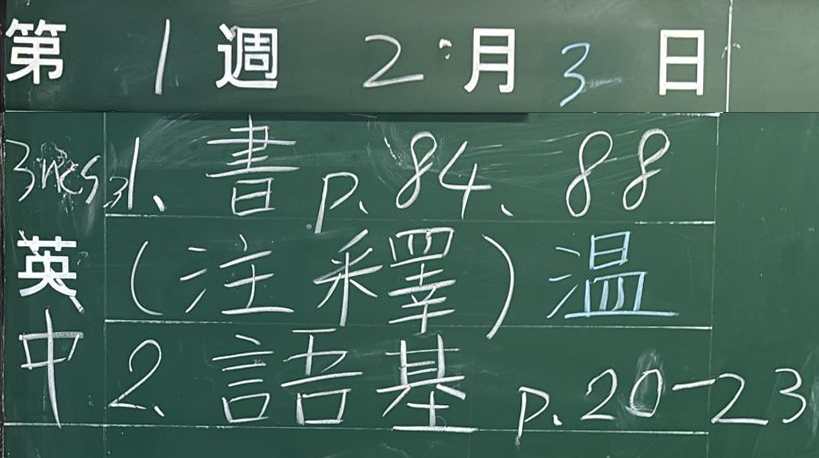 第1週 2月3日
1、書 p.84、88
英
(注釋)溫
中
2、語基 p.20-23